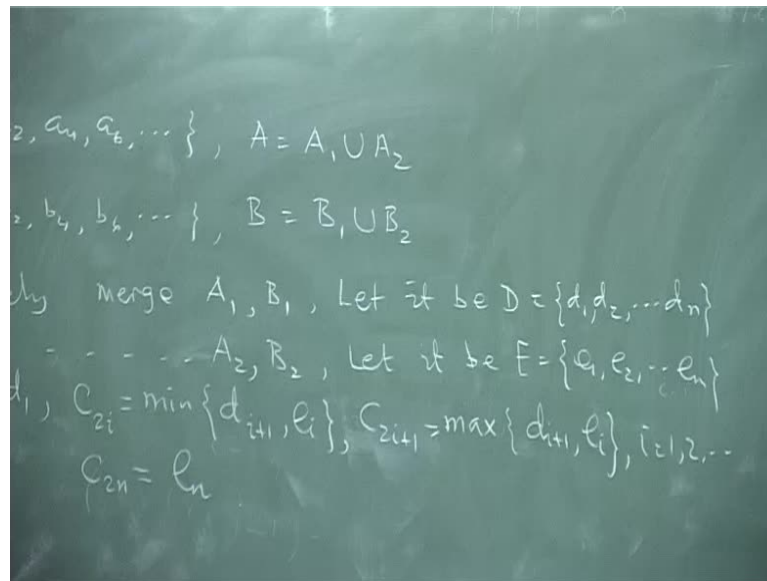 2, a₄, a₆, ... }, A = A₁ ∪ A₂
2, b₄, b₆, ... }, B = B₁ ∪ B₂
ly merge A₁, B₁, Let it be D = {d₁, d₂, ... dₙ}
- - - ... A₂, B₂, Let it be E = {e₁, e₂, ... eₙ}
d₁, C₂ᵢ = min{dᵢ₊₁, eᵢ}, C₂ᵢ₊₁ = max{dᵢ₊₁, eᵢ}, i=1,2,...
C₂ₙ = eₙ